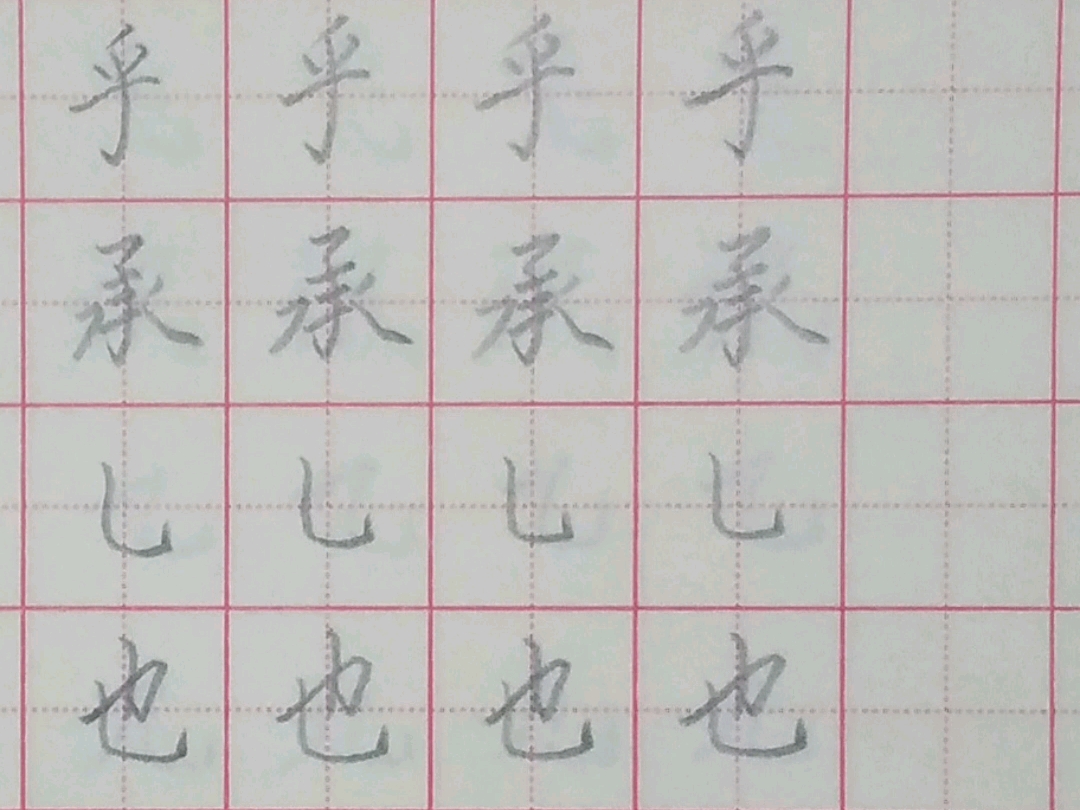 乎乎乎乎
承承承承
乚乚乚乚
也也也也